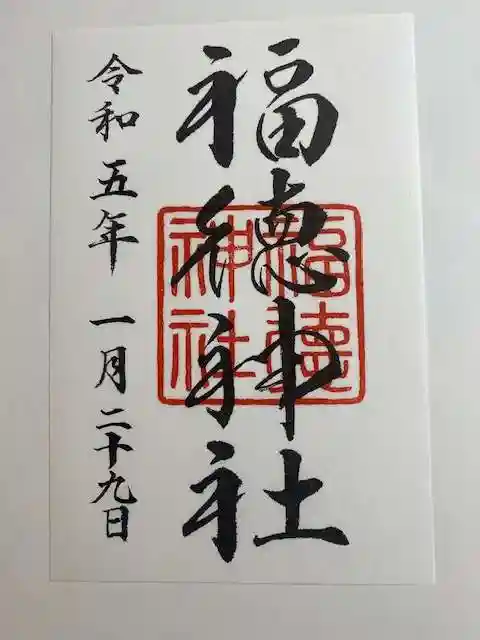 福徳神社
福徳神社
令和五年一月二十九日